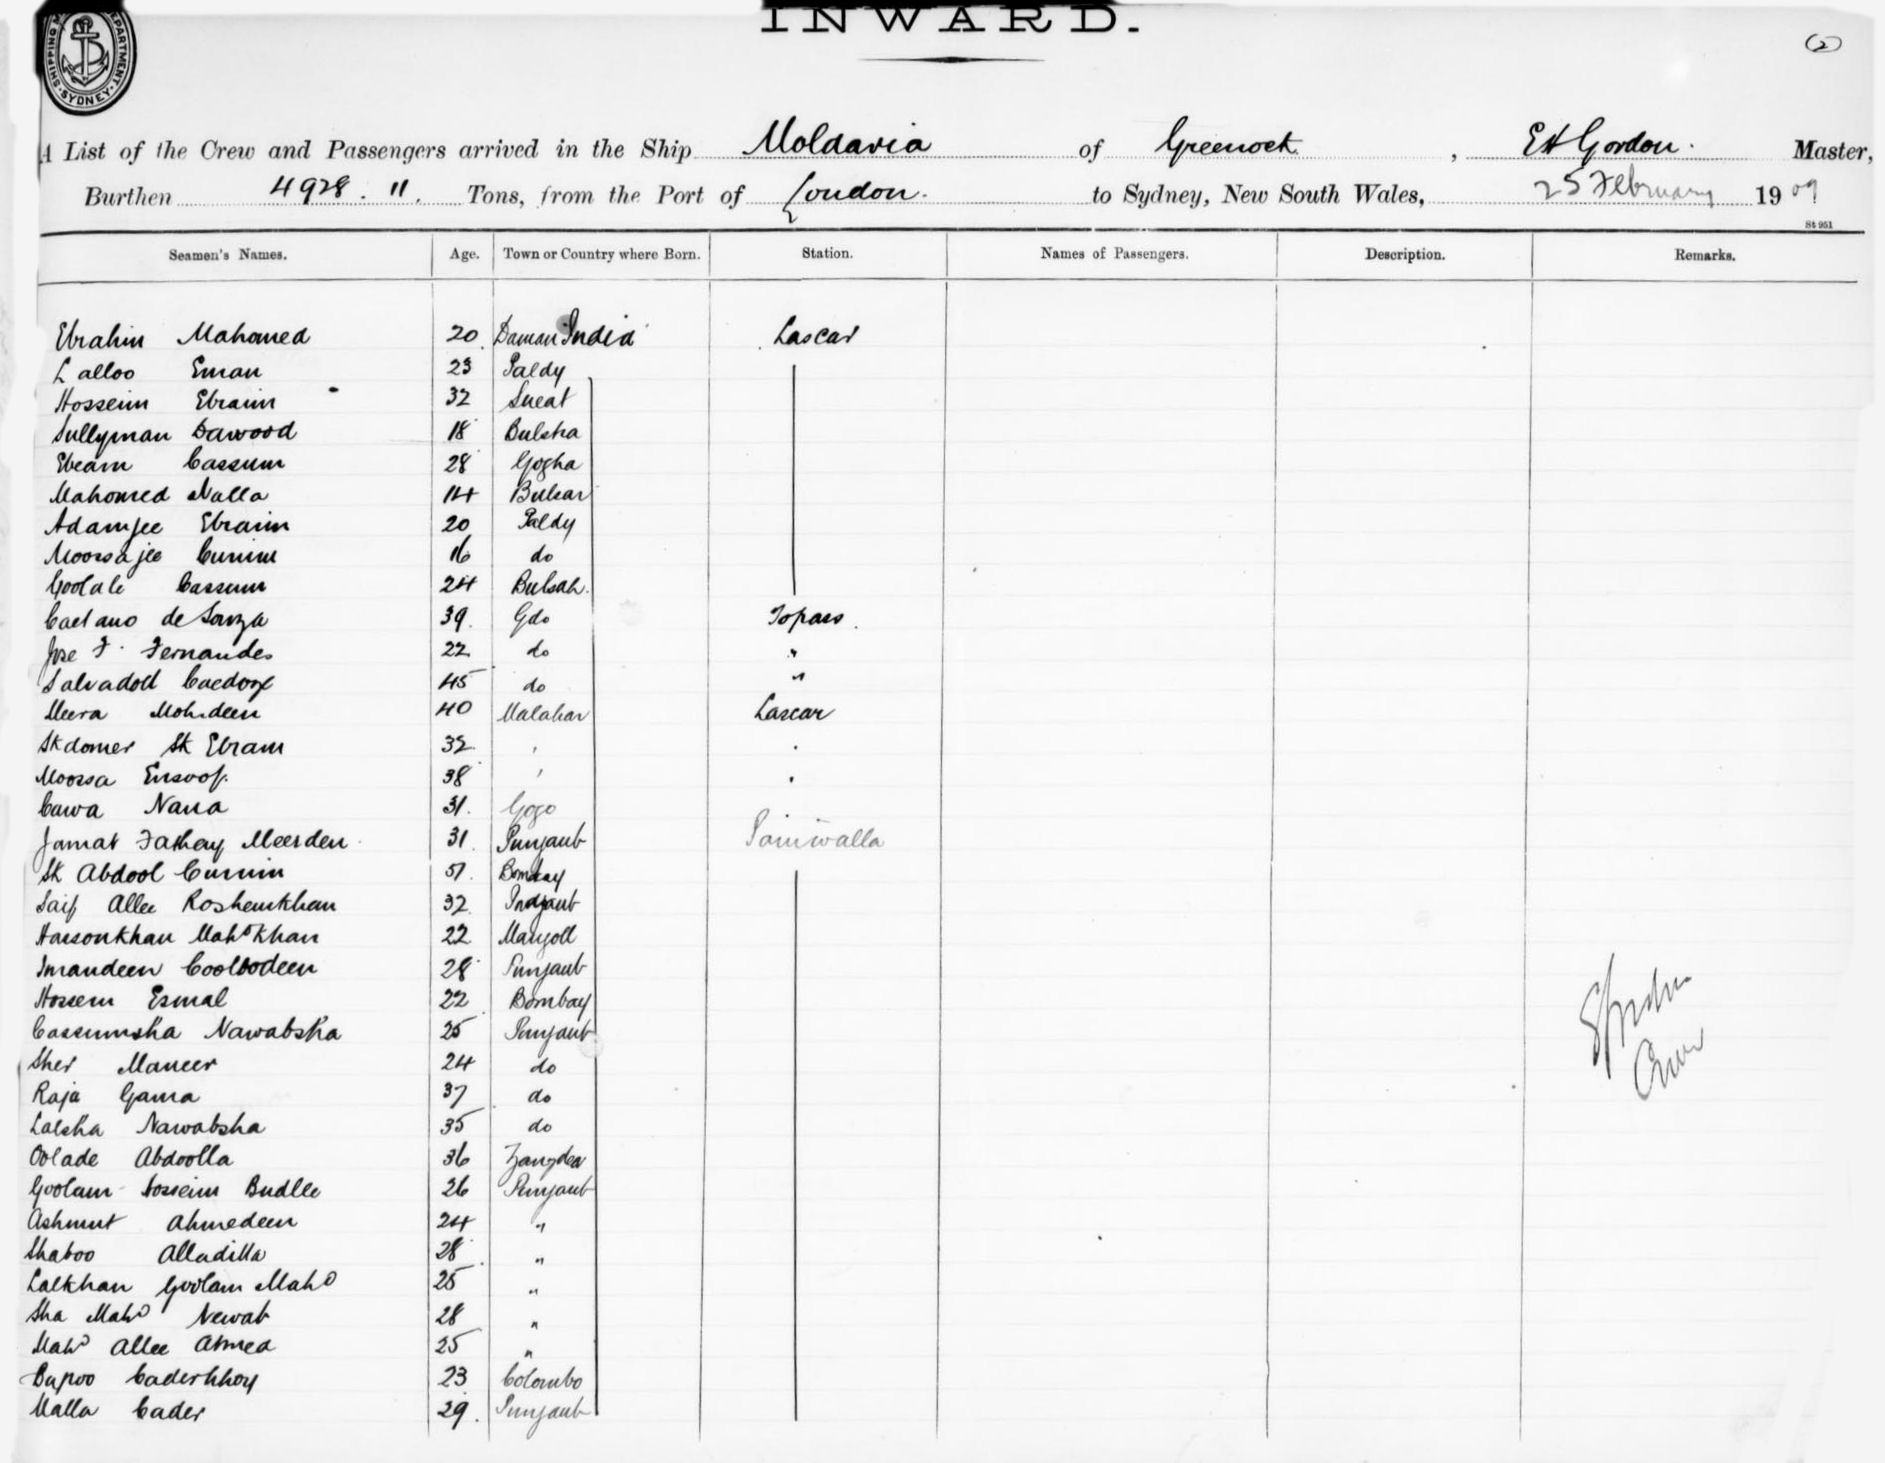 INWARD.
(2)
SHIPPING MASTER'S DEPARTMENT SYDNEY
A List of the Crew and Passengers arrived in the Ship Moldavia of Greenock, EH Gordon. Master,
Burthen 4928.11. Tons, from the Port of London. to Sydney, New South Wales, 25 February 1909
St 951
Seamen's Names. Age. Town or Country where Born. Station. Names of Passengers. Description. Remarks.
Ebrahim Mahomed 20 Daman India Lascar
Lalloo Eman 23 Paldy
Hosseim Ebraim 32 Sueat
Sullyman Dawood 18 Bulsha
Ebram Cassum 28 Gogha
Mahomed Nalla 14 Bulsar
Adamjee Ebraim 20 Paldy
Moosajee Cumim 16 do
Goolale Cassum 24 Bulsah.
Caetano de Souza 39. Goo Topass.
Jose F. Fernandes 22 do "
Salvadod 45 do "
Meera Mohideen 40 Malabar Lascar
Sk domer Sk Ebram 32 ' '
Moossa Ensoof. 38 ' '
Cawa Nana 31. Gogo
Jamat Meerden 31. Punjaub Paniwalla
Sk Abdool Curnim 51. Bombay
Saif Allee Roshemkhan 32 Punjaub
Hassonkhan Maho Khan 22 Mangoll
Imandeen Coolbodeen 28 Punjaub
Hossem Esmal 22 Bombay
Cassumsha Nawabsha 25 Punjaub
Sher Maneer 24 do
Raja Gama 37 do
Lalsha Nawabsha 35 do
Oolade Abdoolla 36
Goolam Hosseim Budlle 26 Punjaub
Ashmut Ahmedeen 24 "
Shaboo Alladilla 28 "
Lalkhan Goolam Maho 25 "
Sha Maho Newab 28 "
Maho Allee Ahmed 25 "
Bapoo Caderbhoy 23 Colombo
Malla Cader 29. Punjaub